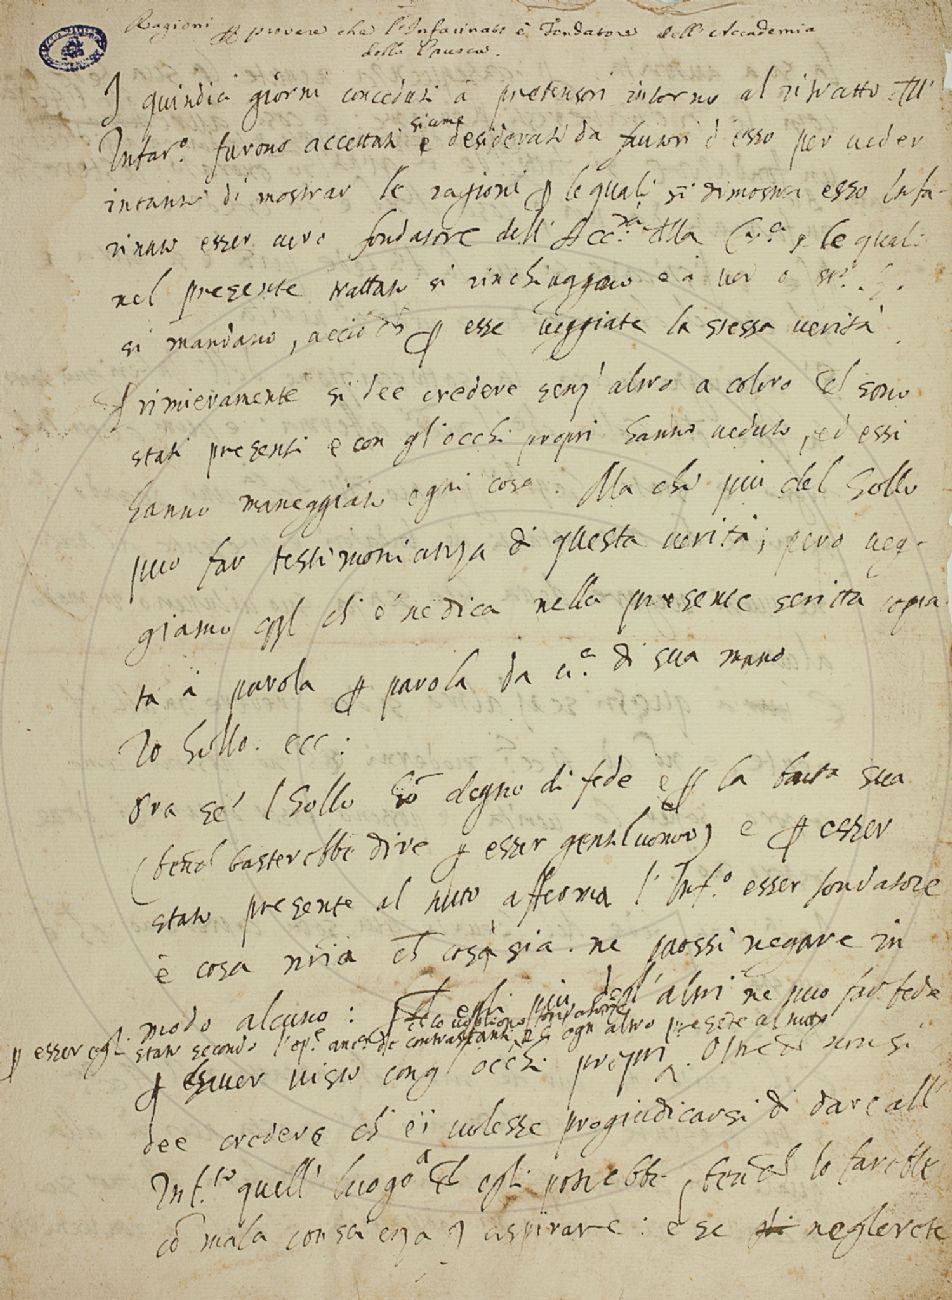 Ragioni p provare che l'Infarinato è Fondatore dell'Accademia
della Crusca.
I quindici giorni conceduti a pretensori intorno al ritratto dll'
Infar.o furono accettati siame e desiderati da fautori d'esso per veder
intanto di mostrar le ragioni p lequali si dimostra esso Infa-
rinato esser vero fondatore dell' Acc.ma dlla Cr.ca, le quali
nel presente trattato si rinchiuggano e a voi
si mandano, acciò ch p esse veggiate la stessa verità
Primieramente si dee credere senz' altro a coloro ch sono
stati presenti e con gl'occhi propri hanno veduto, ed essi
hanno maneggiato ogni cosa. Ma chi più del Sollo
può far testimonianza di questa verità; però veg-
giamo qql ch è ne dica nella presente scritta copia
ta à parola p parola da di sua mano
Io Sollo. ecc:
Ora se l Sollo degno di fede è p la bontà sua
(bench basterebbe dire p esser gentiluomo) e p esser
stato presente al tutto afferma l'Inf.o esser fondatore
è cosa ch così sia. ne puossi negare in
modo alcuno: egli più degl' altri ne può far fede
p esser egli stato secondo l'op.e anch de contrastanti ogn altro presete al tutto
p haver visto congl' occhi propri. Oltre ch non si
dee credere ch ei volesse pregiudicarsi di dare all'
Inf.to quell' luogo a ch egli potrebbe, bench lo farebbe
cō mala conscienza aspirare: e se neglerete